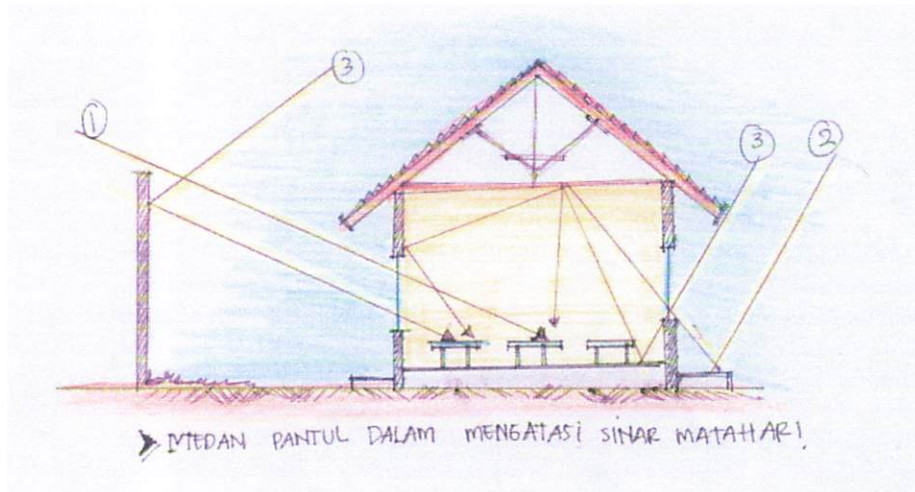 3
1
3
2
MEDAN PANTUL DALAM MENGATASi SINAR MATAHARI